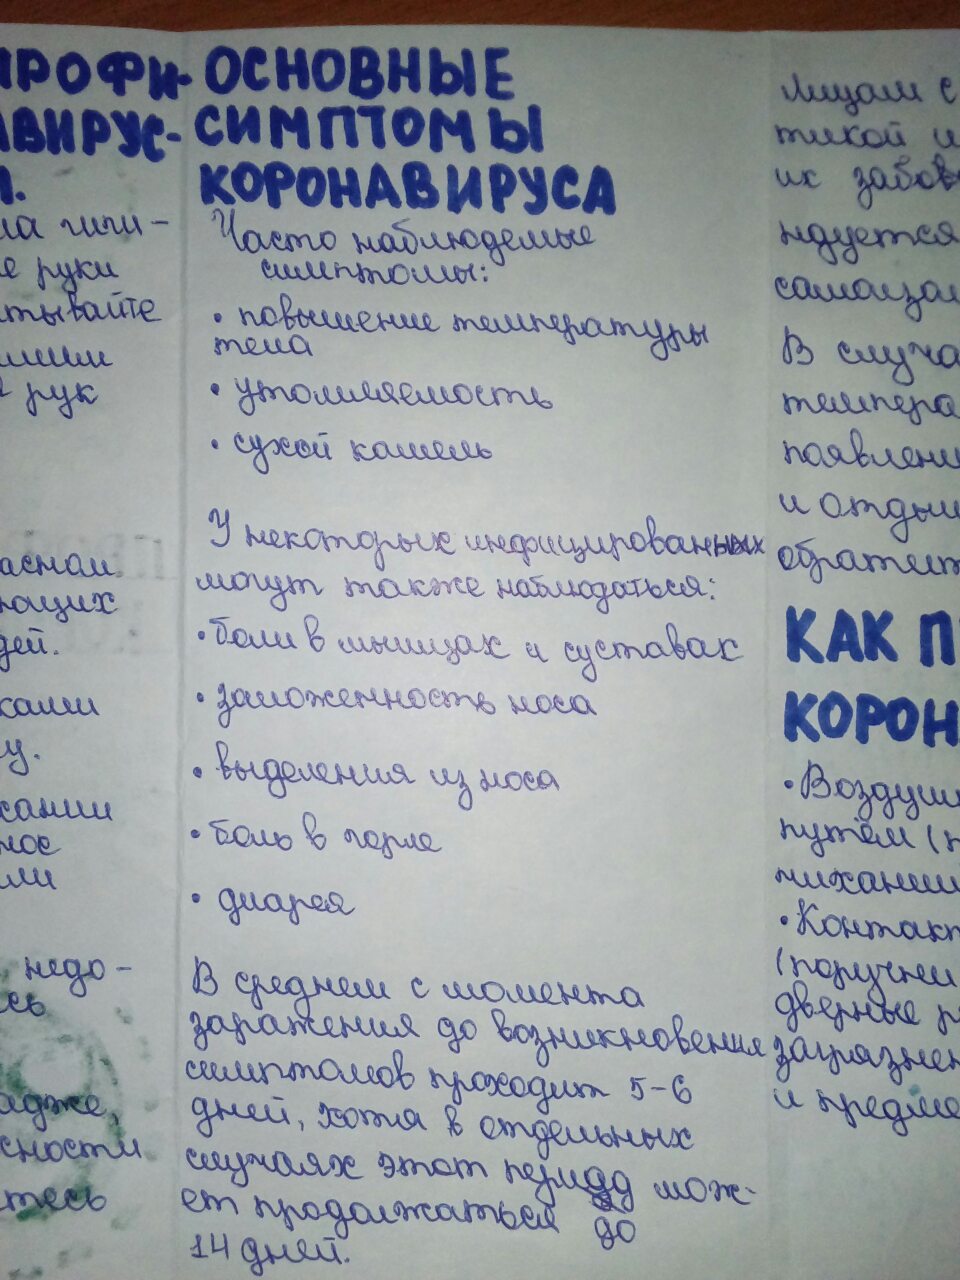 ПРОФИ-
АВИРУС-
ла гиги-
е руки
тывайте
рук
асном
ющих
дей.
ками
у.
хании
нос
ли
недо-
сь
адже,
сности
тесь
ОСНОВНЫЕ
СИМПТОМЫ
КОРОНАВИРУСА
Часто наблюдемые
симптомы:
• повышение температуры
тела
• утомляемость
• сухой кашель
У некоторых инфицированных
могут также наблюдаться:
• боли в мышцах и суставах
• заложенность носа
• выделения из носа
• боль в горле
• диарея
В среднем с момента
заражения до возникновения
симптомов проходит 5-6
дней, хотя в отдельных
случаях этот период мож-
ет продолжаться до
14 дней.
Лицам с
тикой и
их забов
ндуется
самоизол
В случа
темпера
появлени
и отдыш
обратит
КАК П
КОРОН
• Воздуш
путём (п
чихании
• Контакт
(поручни
дверные р
загрязнен
и предме